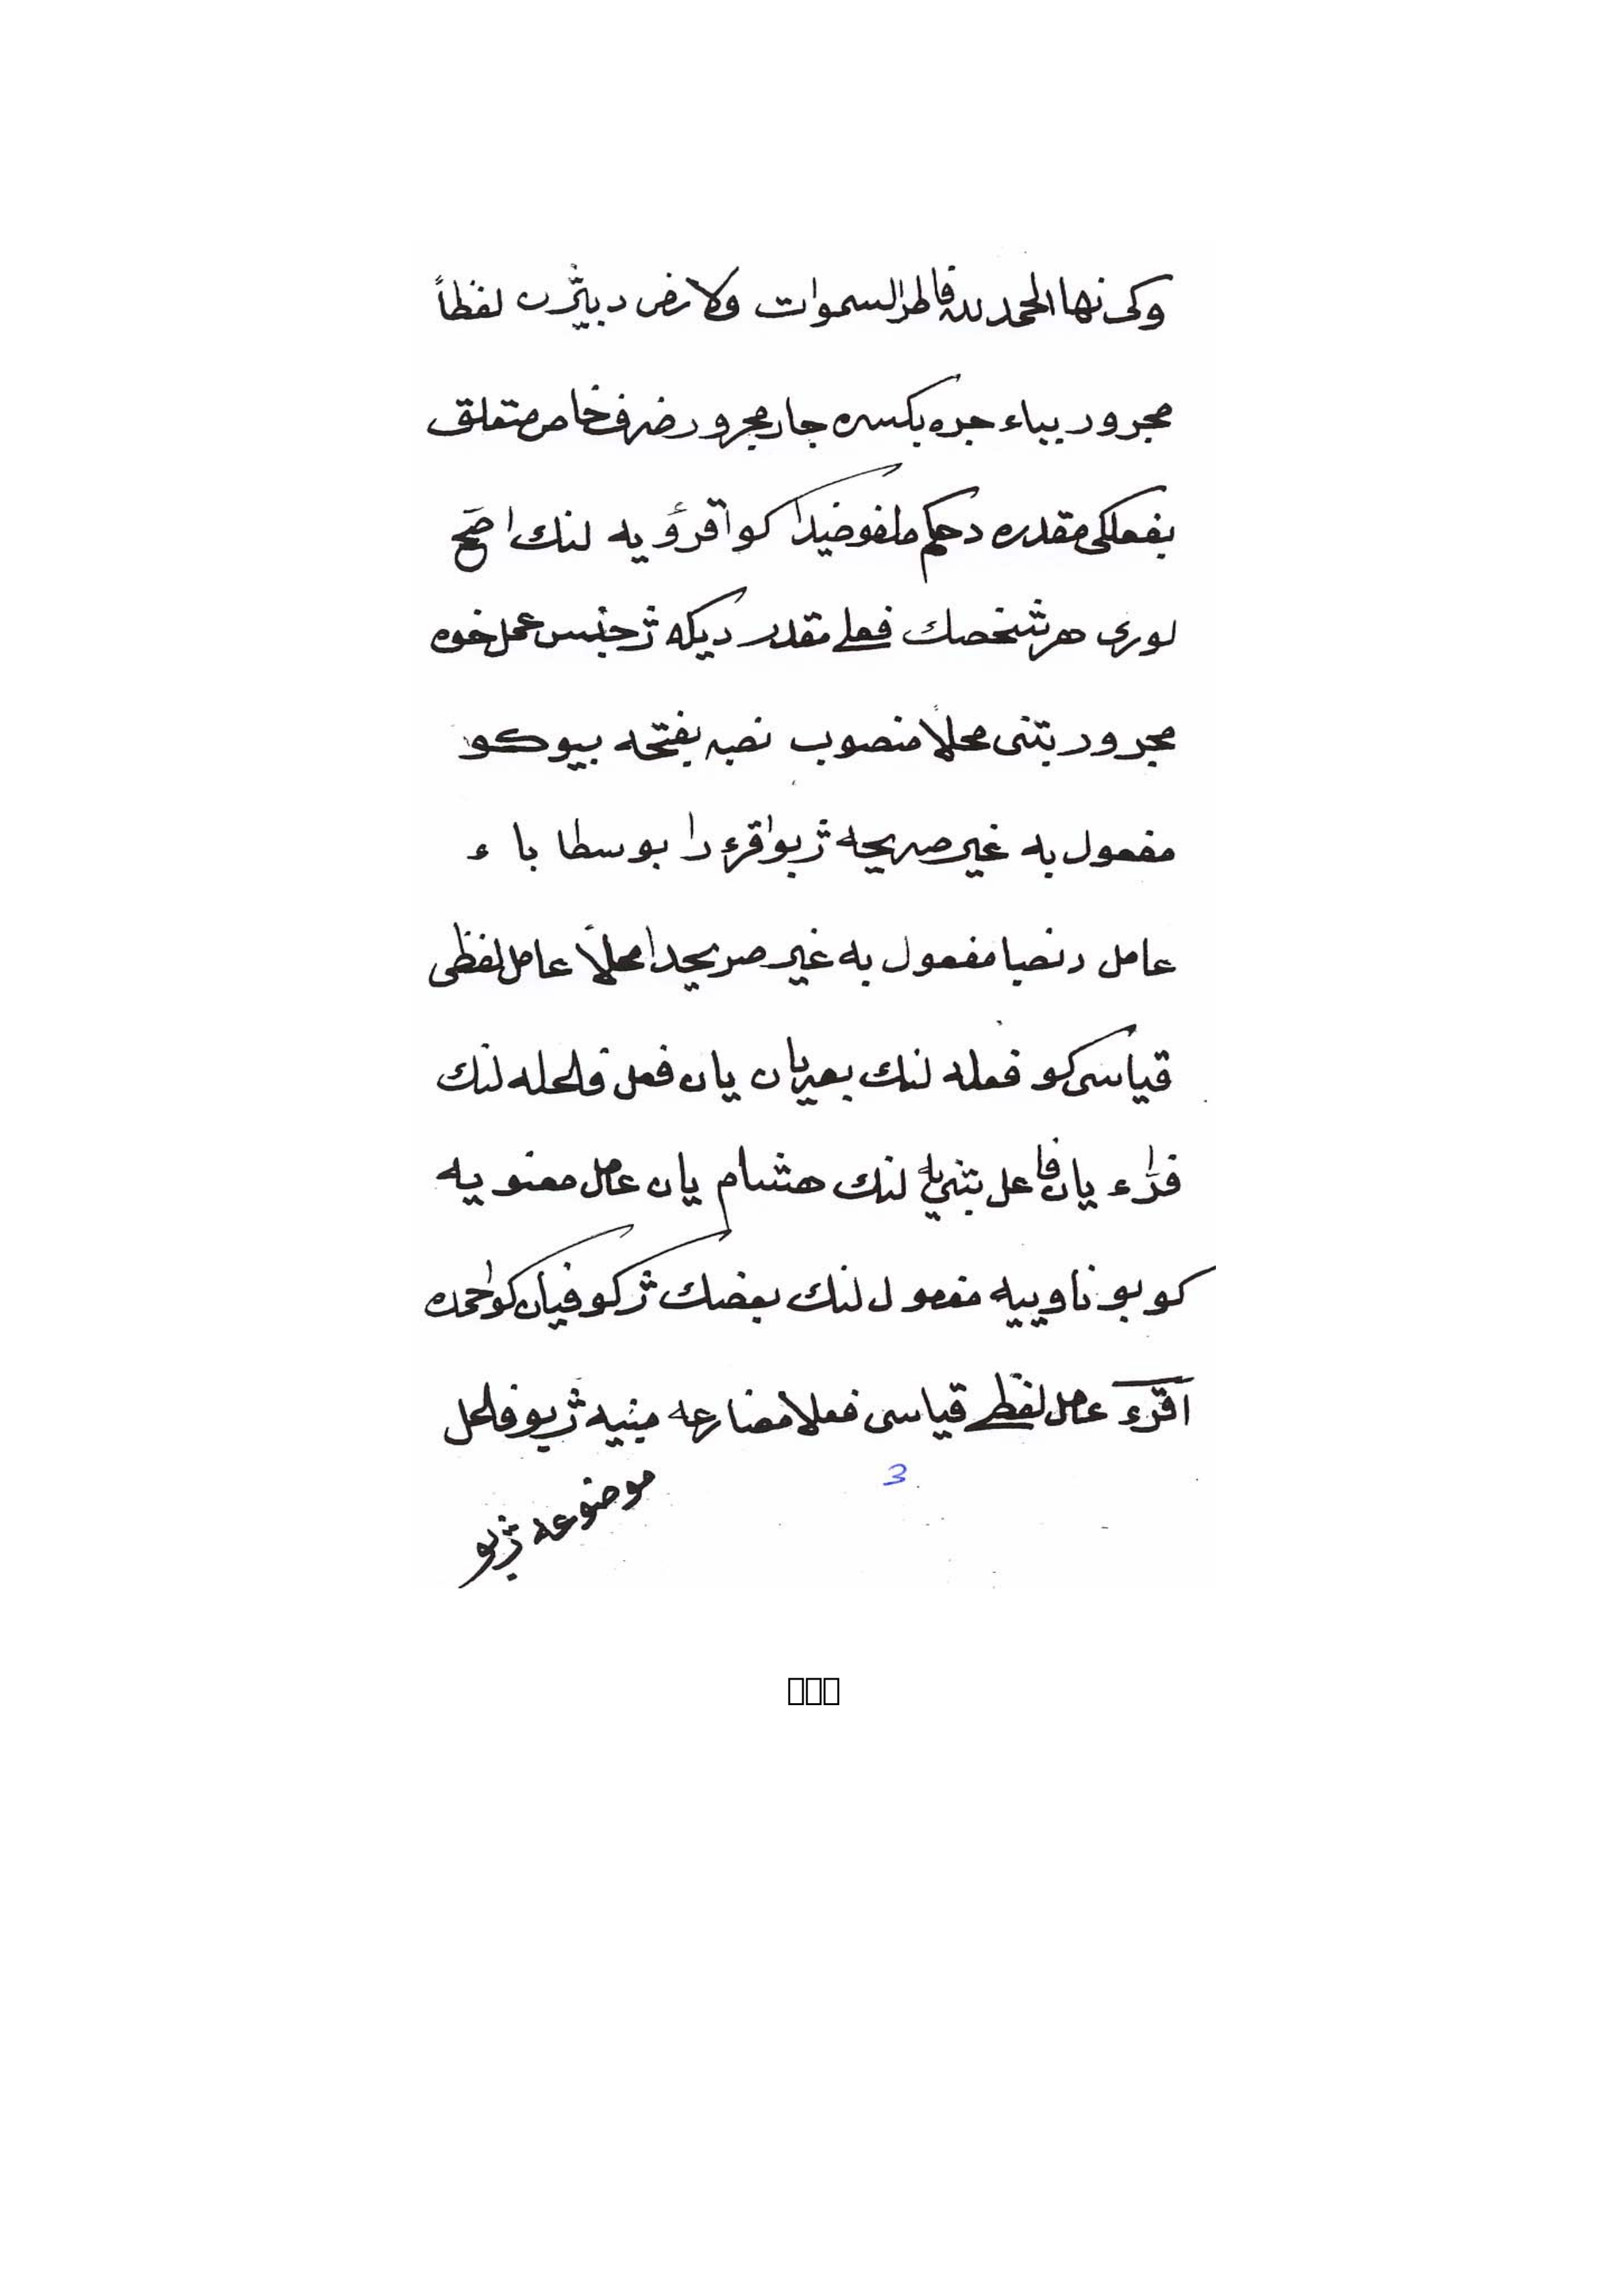 وكى نها الحمد لله فاطر السموات والارض دبيّژن لفظاً
مجرور بباء جره بكسره جار مجرور ضرف خاص متعلق
بفعلكى مقدره دحكم ملفوضيدا كو اقرؤ يه لنك اصَح
لورى هر شخصك فعلے مقدر ديكه ژ جنس عمل خوه
مجرور بتنى محلاً منصوب نصبه بفتحه بيو كو
مفعول به غير صريحه ژبو اقرء را بوسطا باء
عامل دنصبا مفعول به غير صريحدا محلاً عامل لفظى
قياسى كو فعله لنك بصريان يان فعل فاعله لنك
فرّاء يان فاعل بتنى يه لنك هشام يان عامل معنويه
كو بو ناوييه مفعول لنك بعضك ژ كوفيان كو احمده
اقرء عامل لفظے قياسى فعلا مضارعه مبنيه ژبو فاعل
3
موضوعه ژبو